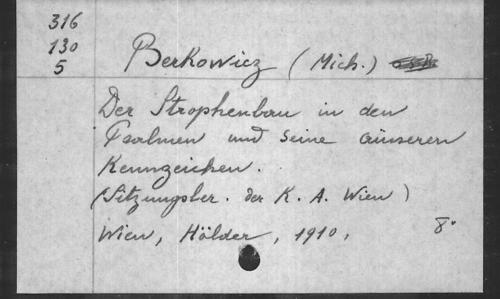 316
130
5
Berkowicz (Mich.)
Der Strophenbau in den
Psalmen und seine äuseren
Kennzeichen.
(Sitzungsber. der K. A. Wien)
Wien, Hölder, 1910, 8°